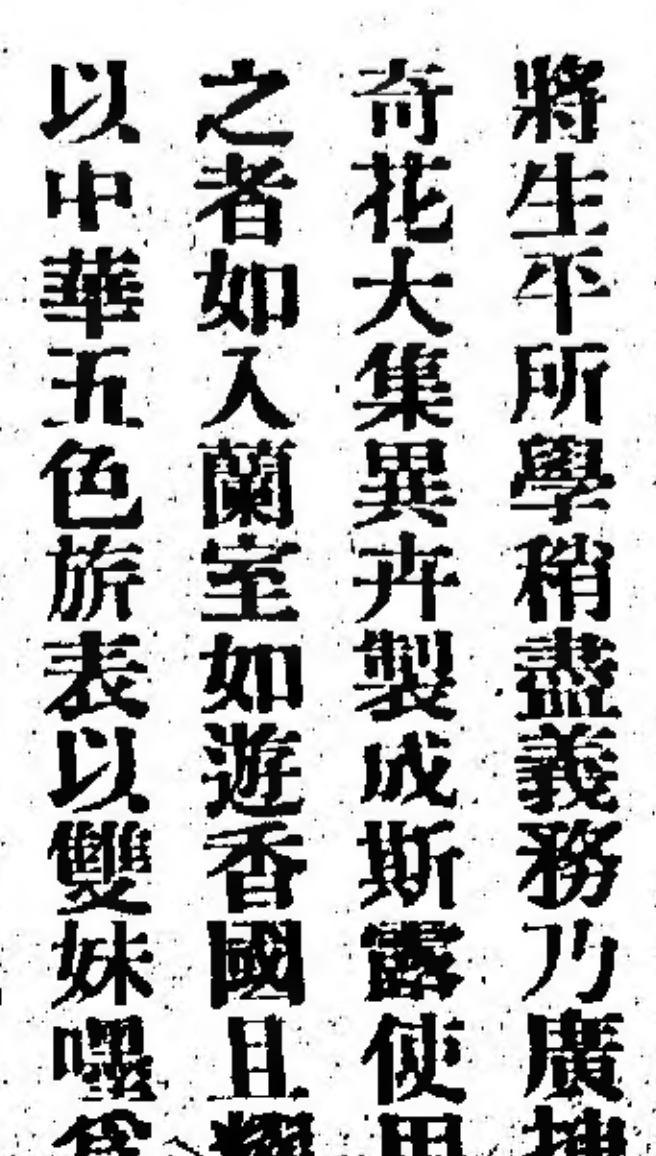 將生平所學稍盡義務乃廣
奇花大集異卉製成斯露使用
之者如入蘭室如遊香國且耀
以中華五色旂表以雙妹嘜為